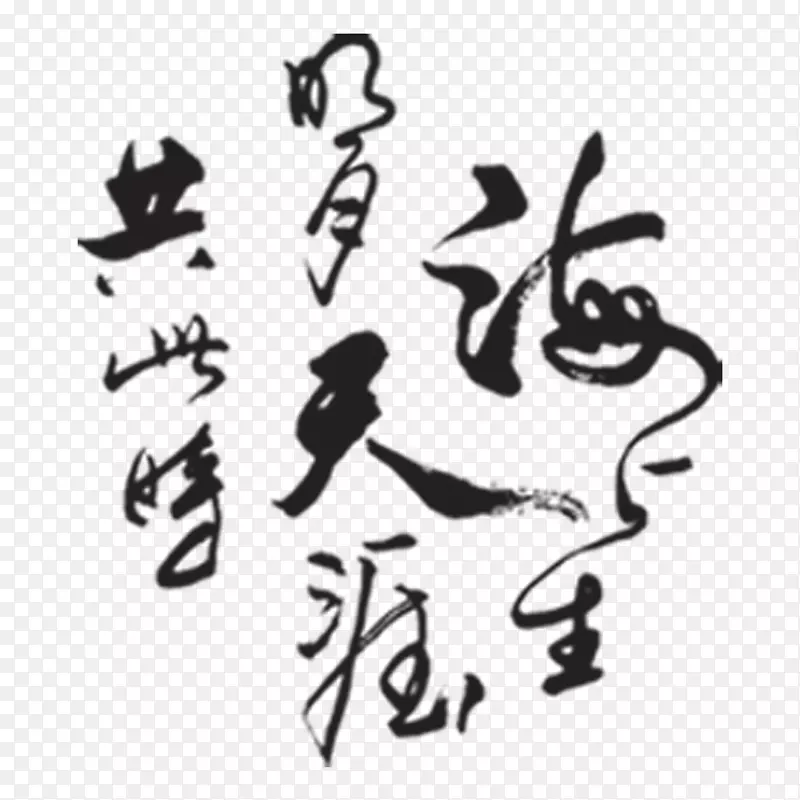 海上生
明月天涯
共此時